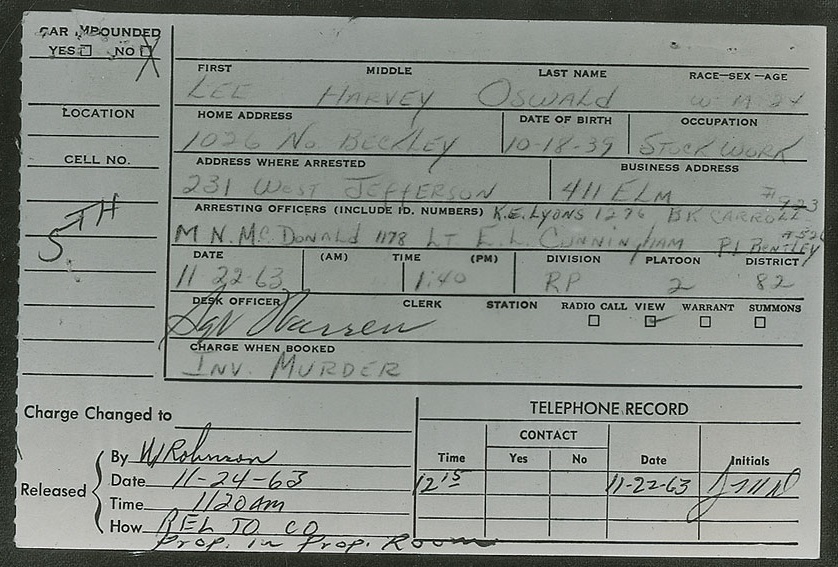 CAR IMPOUNDED
YES NO X
LOCATION
CELL NO.
5TH
FIRST MIDDLE LAST NAME RACE-SEX-AGE
LEE HARVEY OSWALD W M 24
HOME ADDRESS DATE OF BIRTH OCCUPATION
1026 NO. BECKLEY 10-18-39 STOCK WORK
ADDRESS WHERE ARRESTED BUSINESS ADDRESS
231 WEST JEFFERSON 411 ELM
ARRESTING OFFICERS (INCLUDE ID. NUMBERS) K.E. LYONS 1276 BK CARROLL
M N. McDONALD 1178 LT E.L. CUNNINGHAM P.L BENTLEY
DATE (AM) TIME (PM) DIVISION PLATOON DISTRICT
11 22-63 1:40 RP 2 82
DESK OFFICER CLERK STATION RADIO CALL VIEW WARRANT SUMMONS
Sgt Warren
CHARGE WHEN BOOKED
INV. MURDER
Charge Changed to
Released
By W Robinson
Date 11-24-63
Time 1120AM
How REL TO CO
Prop. in Prop. Room
TELEPHONE RECORD
CONTACT
Time Yes No Date Initials
12 15 11-22-63